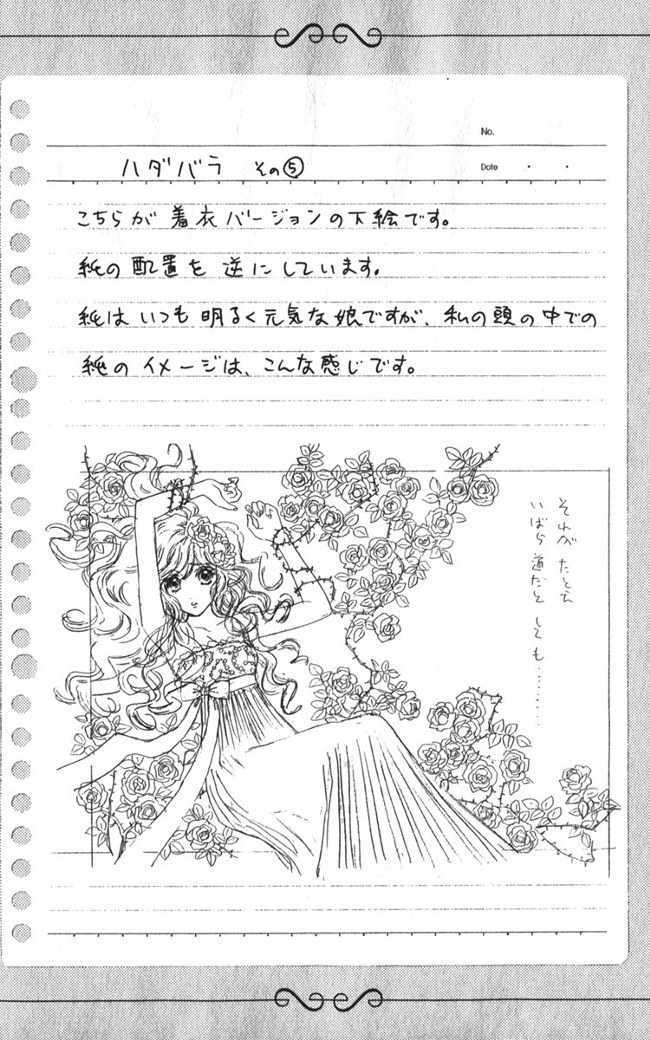 No.
ハダバラ その⑤
Date ・ ・
こちらが 着衣バージョンの下絵です。
の 配置を 逆に しています。
は いつも 明るく元気な娘ですが、私の頭の中での
の イメージは、こんな感じです。
それが たとえ
いばら道だと しても………